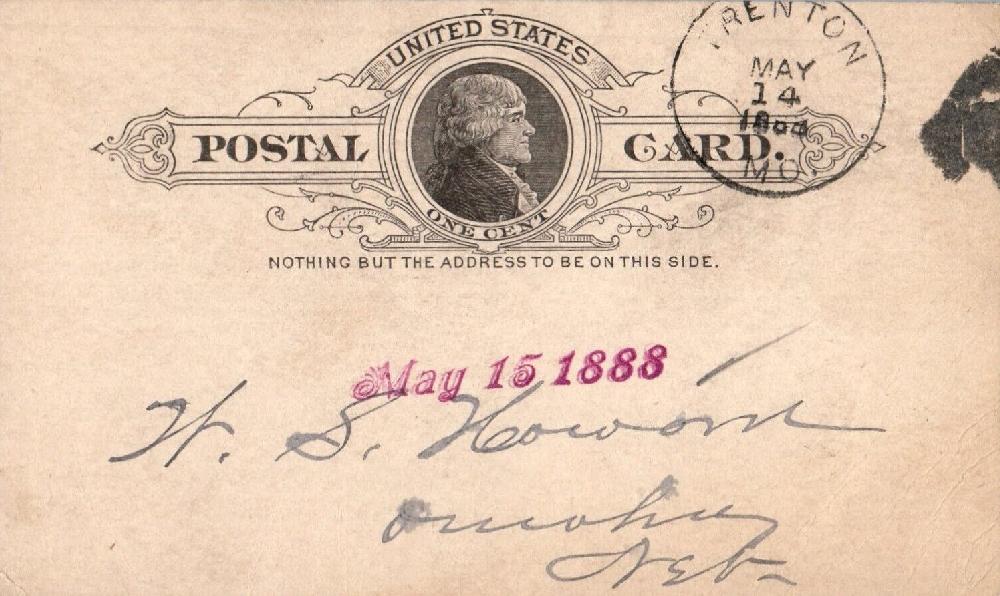 UNITED STATES
POSTAL CARD.
ONE CENT
NOTHING BUT THE ADDRESS TO BE ON THIS SIDE.
TRENTON
MAY
14
MO.
May 15 1888
S. Howard
Omaha
Neb-